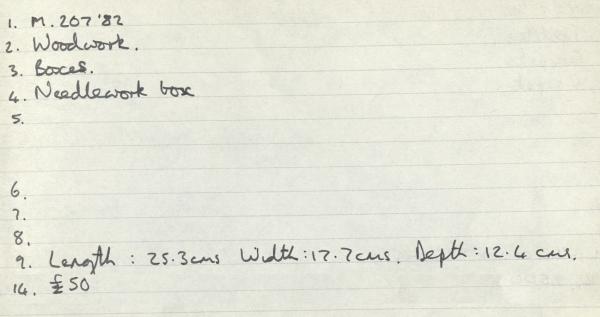 1. M. 207 '82
2. Woodwork.
3. Boxes.
4. Needlework box
5.
6.
7.
8.
9. Length : 25.3cms Width : 17.7cms. Depth : 12.4 cms.
14. £50